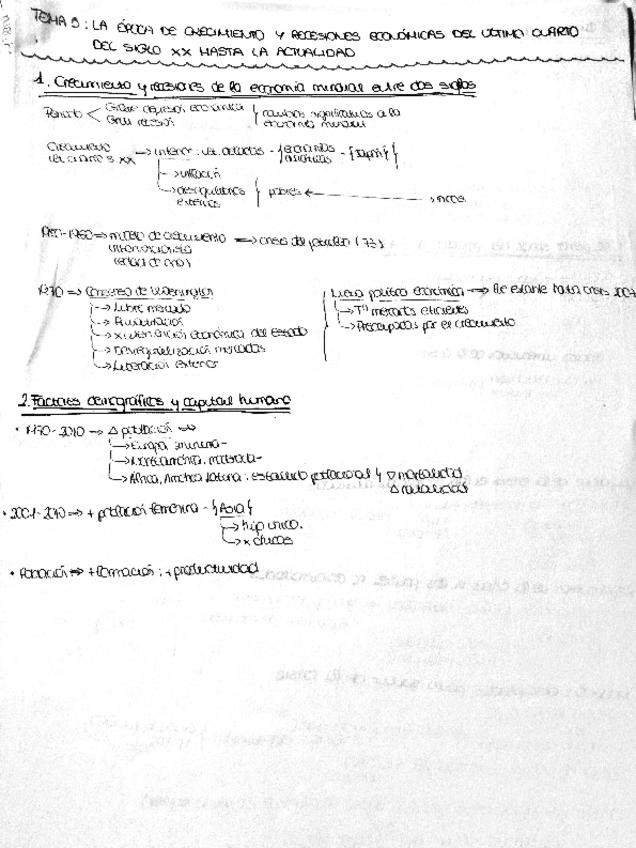 TEMA 9: LA ÉPOCA DE CRECIMIENTO Y RECESIONES ECONÓMICAS DEL ULTIMO CUARTO
DEL SIGLO XX HASTA LA ACTUALIDAD
1. Crecimiento y recesiones de la economía mundial entre dos siglos
Periodo < Grave depresión económica
Gran recesión
} cambios significativos a la
economía mundial
Crecimiento
cuarto s. XX → inferior:
{economías
asiáticas - {Japón}}
→ inflación
→ desequilibrios
externos } pobres ← → ricos
1950-1960 ⇒ modelo de crecimiento ⇒ crisis del petróleo (73)
intervencionista
1970 ⇒ Consenso de Washington
→ Libre mercado
→ Privatización
→ x intervención económica del estado
→ Desregularización mercados
→ Liberación exterior
Nueva política económica → Pre estante hasta crisis 2007
→ Tª mercados eficientes
→ Preocupados por el crecimiento
2. Factores demográficos y capital humano
• 1970-2010 → Δ población
→ Europa
→ Norteamérica.
→ África, América Latina: estallido poblacional { ∇ mortalidad
Δ natalidad
• 2001-2010 ⇒ + población femenina - {Asia}
→ hijo único.
→ x chicas
• Población ⇒ + formación: + productividad